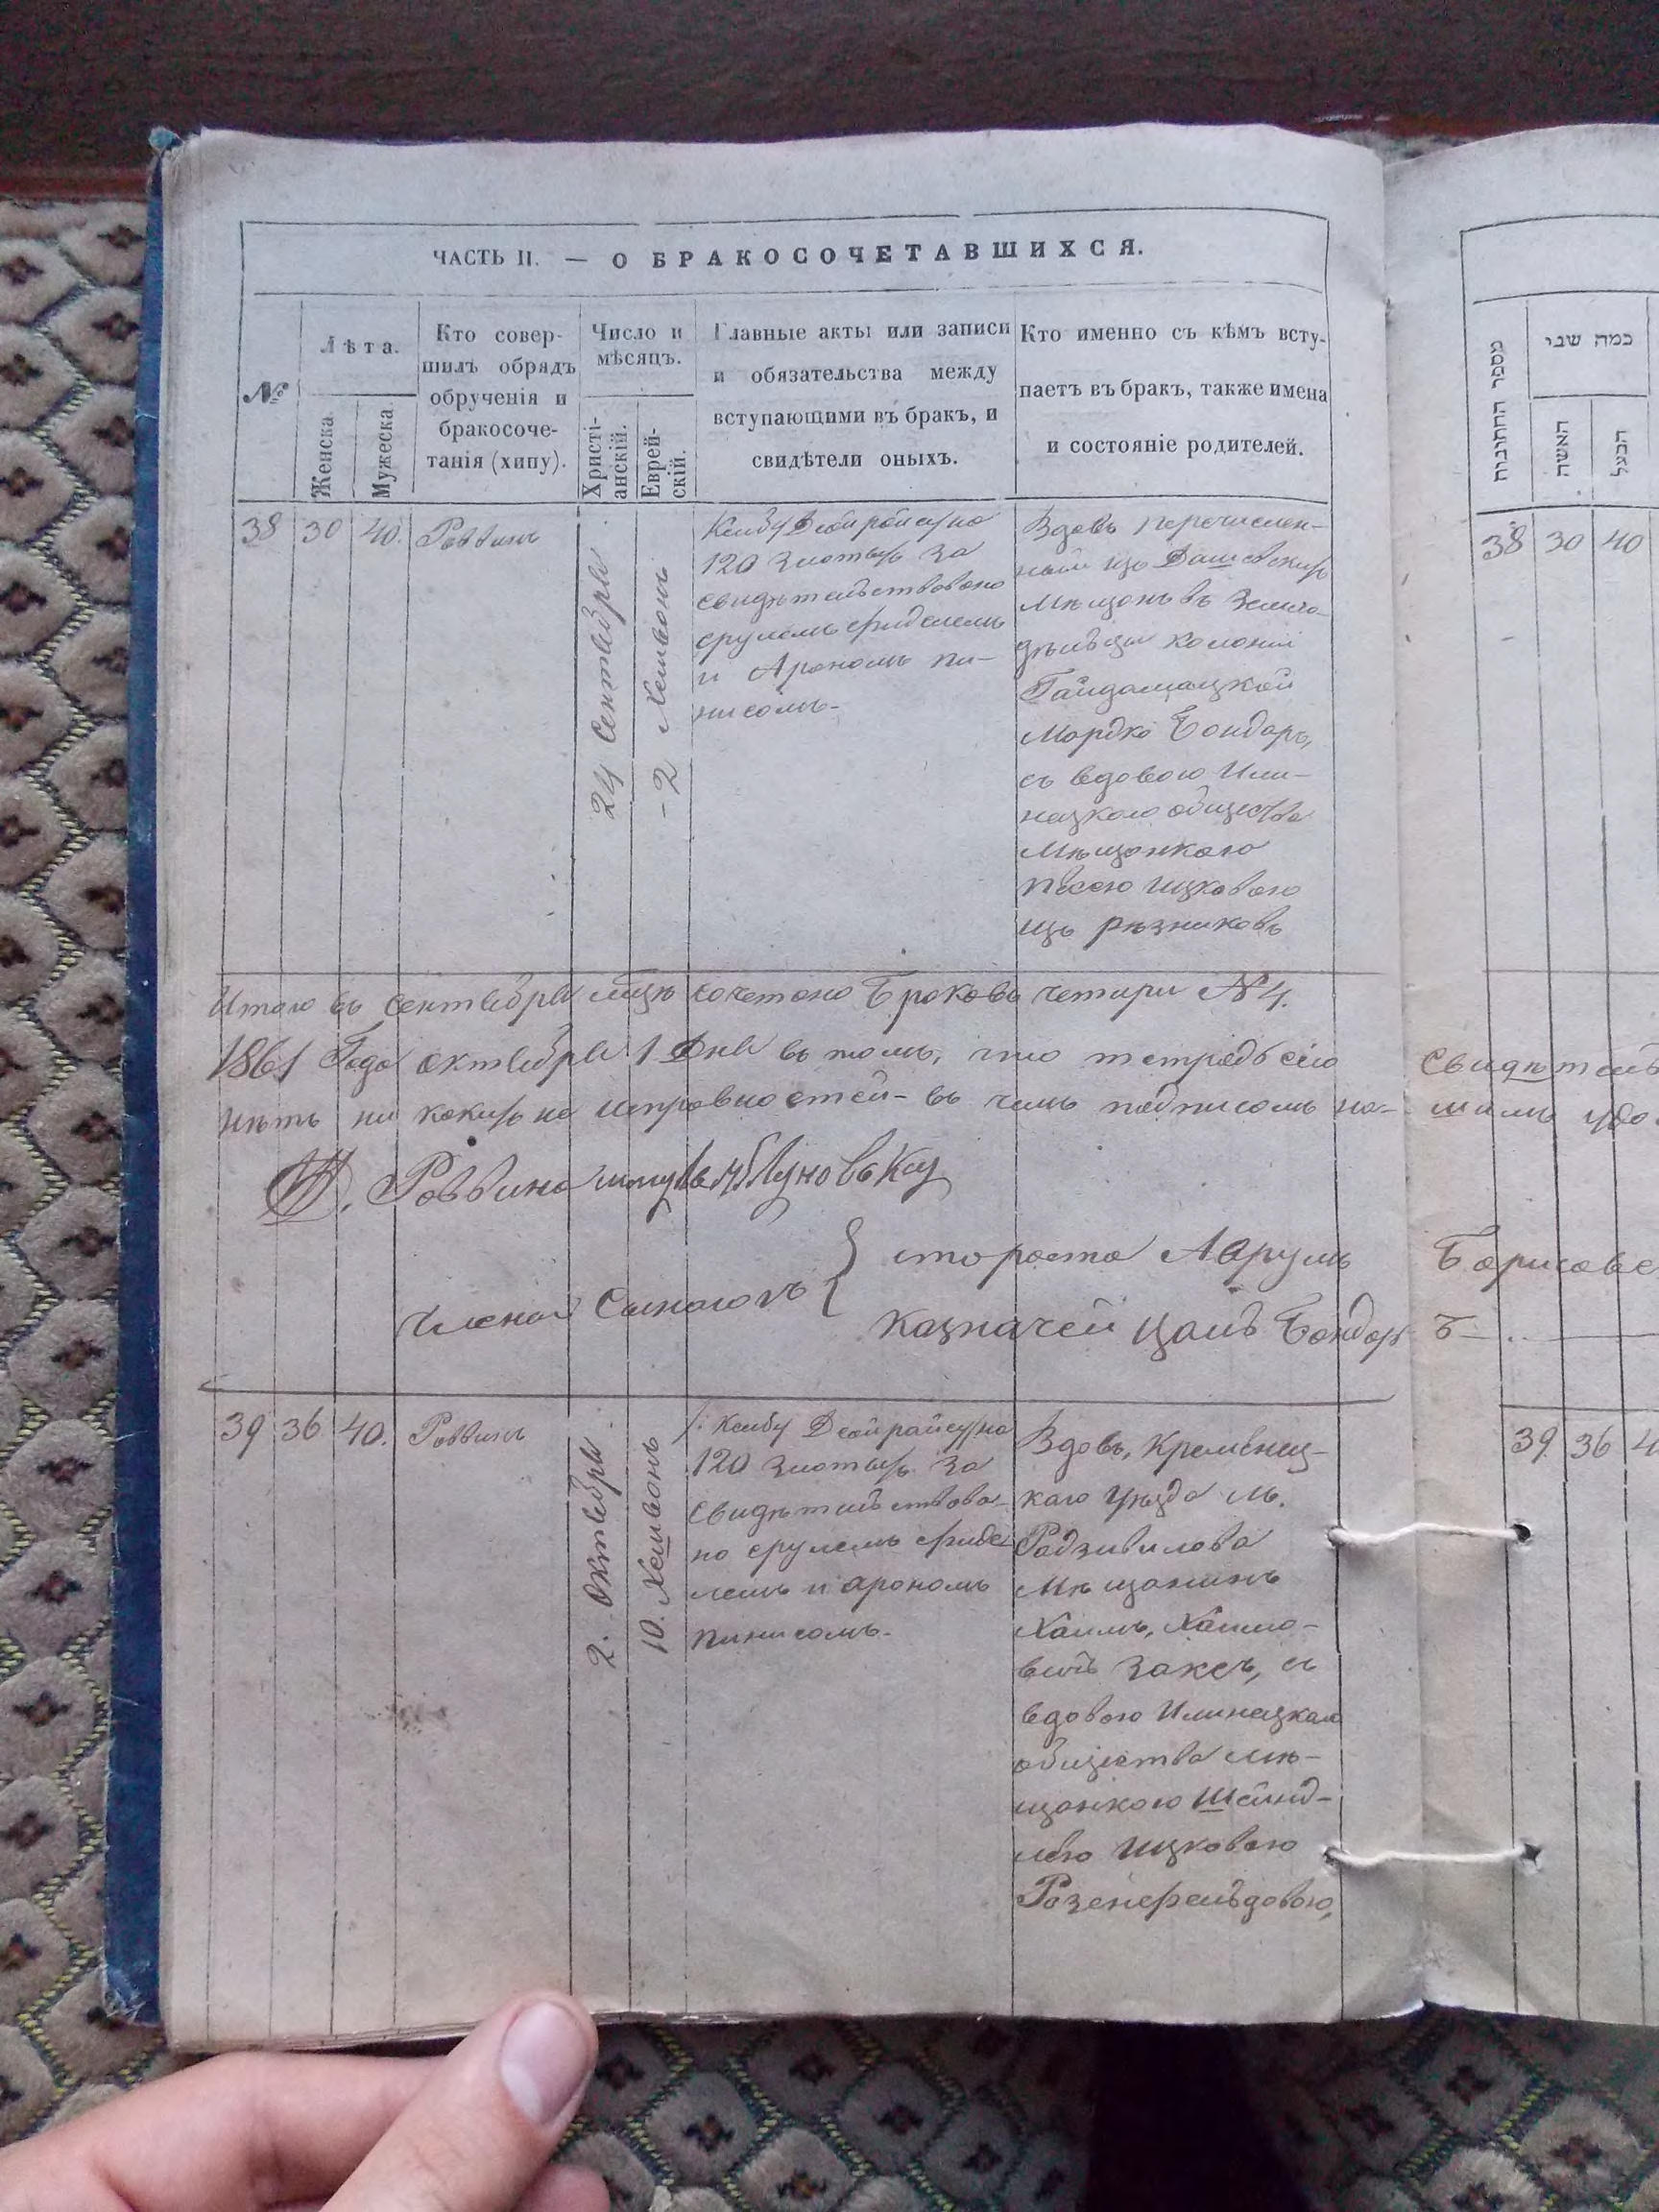 ЧАСТЬ II. — О БРАКОСОЧЕТАВШИХСЯ.
№
Лѣта.
Женска
Мужеска
Кто совер-
шилъ обрядъ
обрученія и
бракосоче-
танія (хипу).
Число и
мѣсяцъ.
Христі-
анскій.
Еврей-
скій.
Главные акты или записи
и обязательства между
вступающими въ бракъ, и
свидѣтели оныхъ.
Кто именно съ кѣмъ всту-
паетъ въ бракъ, также имена
и состояніе родителей.
38 30 40. Раввинъ
24 Сентября
- 2 Хешвонъ
на
120 злотыхъ за
свидѣтельствовано
срулемъ фиделемъ
и Арономъ пи-
нисомъ-
Вдовъ перечислен-
ный изъ Дашевскихъ
мѣщанъ въ Земле-
дѣльцы колоніи
Гайдамацкой
Мордко Бондарь,
съ вдовою Или-
нецкого общества
Мѣщанкою
Песею Ицковою
изъ рѣзниковъ
Итого въ сентября мцѣ сочетано Браковъ четыри №4.
1861 Года октября 1 Дня въ томъ, что тетрадь сію
нѣтъ ни какихъ не исправностей- въ чемъ подписомъ на-
Раввина
члены Сынагогъ
староста Аврумъ
казначей Бондар
39 36 40. Раввинъ
2. Октября
10. Хешвонъ
на
120 злотыхъ за
свидѣтельствова-
но срулемъ фиде
лемъ и арономъ
пинисомъ-
Вдовъ, Кременец-
каго уѣзда м.
Радзивилова
Мѣщанинъ
Хаимъ, Хаимо-
вичъ Заксъ, съ
вдовою Илинецкаго
общества мѣ-
щанкою Шейнд-
лею Ицковою
Розенфельдовою,
מספר החתונות
כמה שני
האשה
הבעל
38 30 40
Свидѣтель
шимъ удо
Борисове
ъ
39 36 4